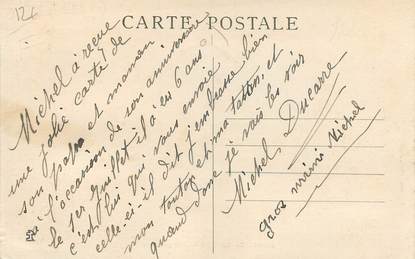 12€
CARTE POSTALE
Michel à reçue
une jolie carte de
son papa et maman
à l'occasion de son anniversaire
le 1er juillet il à eu 6 ans
c'est lui qui vous envoie
celle-ci il dit j'embrasse bien
mon tonton et ma tatan, et
quand donc je vais les voir
Michel Ducarre
gros mimi Michel